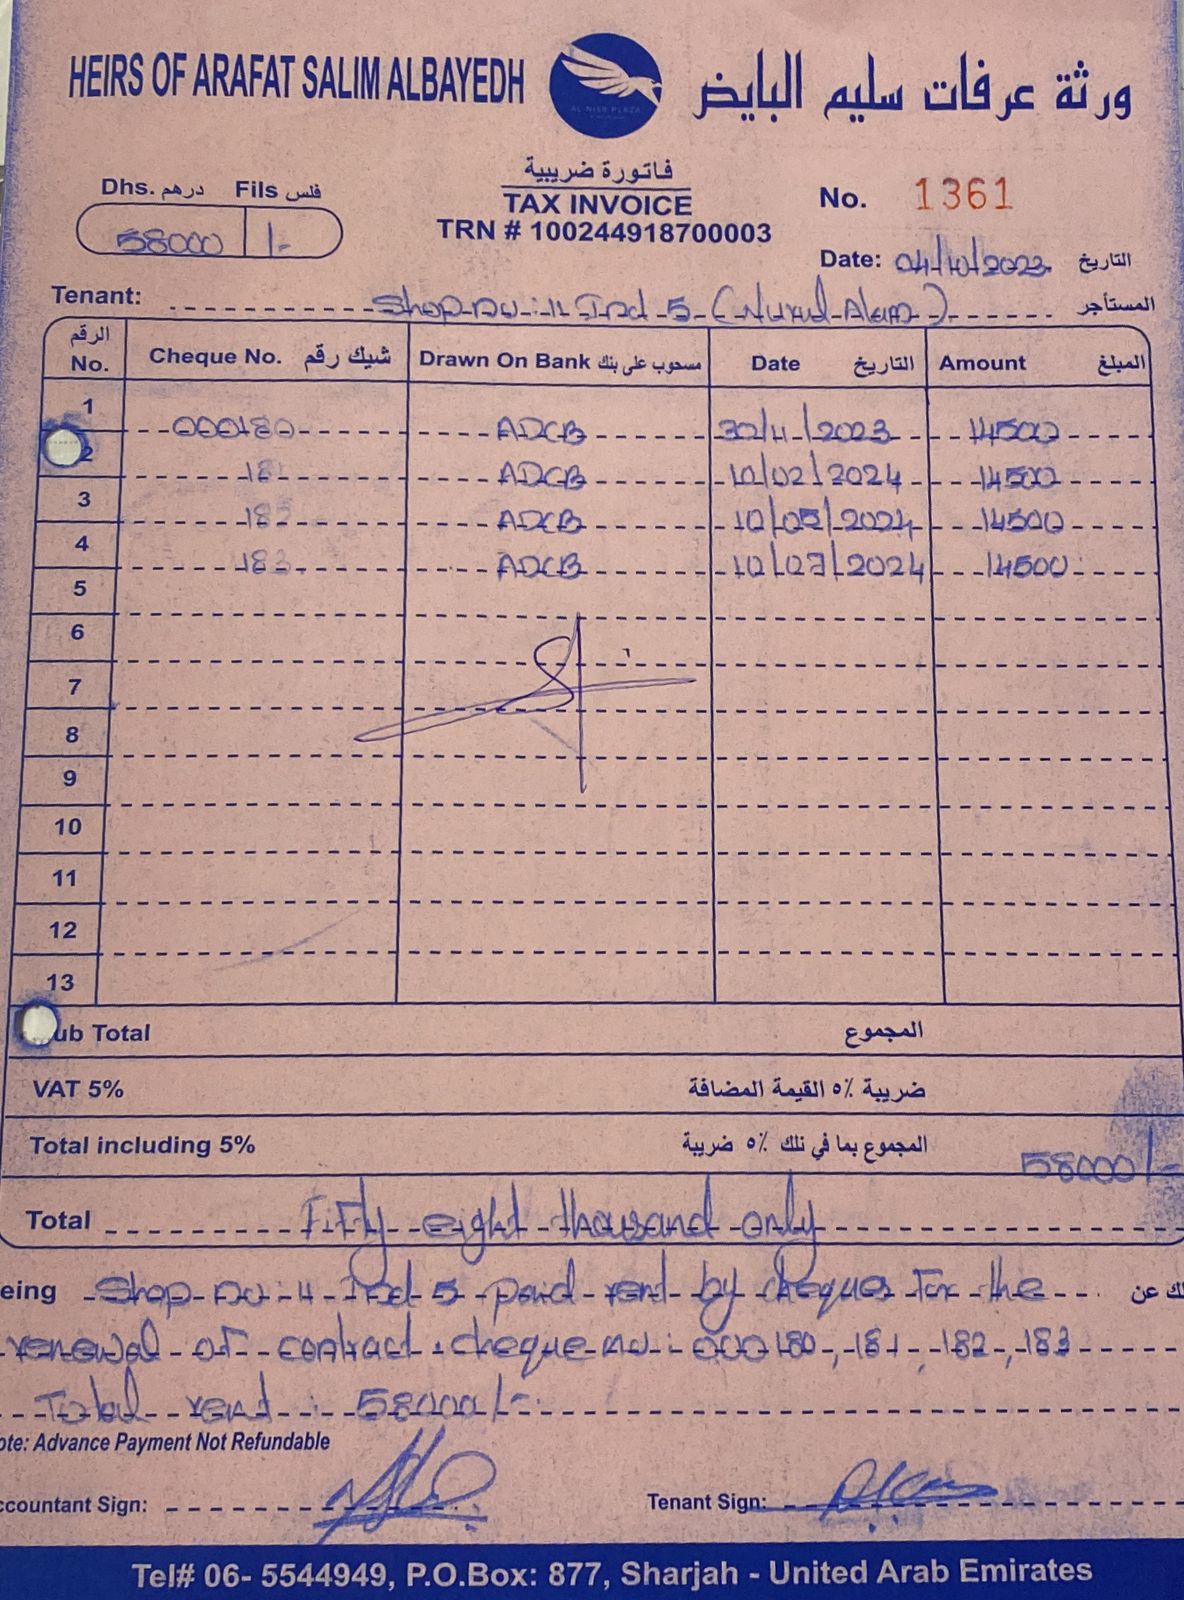 HEIRS OF ARAFAT SALIM ALBAYEDH
ورثة عرفات سليم البايض
AL-NISR PLAZA
فاتورة ضريبية
TAX INVOICE
TRN # 100244918700003
Dhs. درهم Fils فلس
58000 /-
No. 1361
Date: 04/10/2023 التاريخ
Tenant: Shop no: 11 Ind 5 (Nurul Alam) المستأجر
الرقم No. Cheque No. شيك رقم Drawn On Bank مسحوب على بنك Date التاريخ Amount المبلغ
1 000180 ADCB 30/11/2023 14500
2 181 ADCB 10/02/2024 14500
3 182 ADCB 10/05/2024 14500
4 183 ADCB 10/07/2024 14500
5
6
7
8
9
10
11
12
13
ub Total المجموع
VAT 5% ضريبة ٥٪ القيمة المضافة
Total including 5% المجموع بما في تلك ٥٪ ضريبة 58000/-
Total Fifty eight thousand only
eing Shop no: 11 Ind 5 paid rent by cheques for the لك عن
renewal of contract. cheque no: 000180, 181, 182, 183
Total rent: 58000/-
ote: Advance Payment Not Refundable
ccountant Sign:
Tenant Sign:
Tel# 06- 5544949, P.O.Box: 877, Sharjah - United Arab Emirates